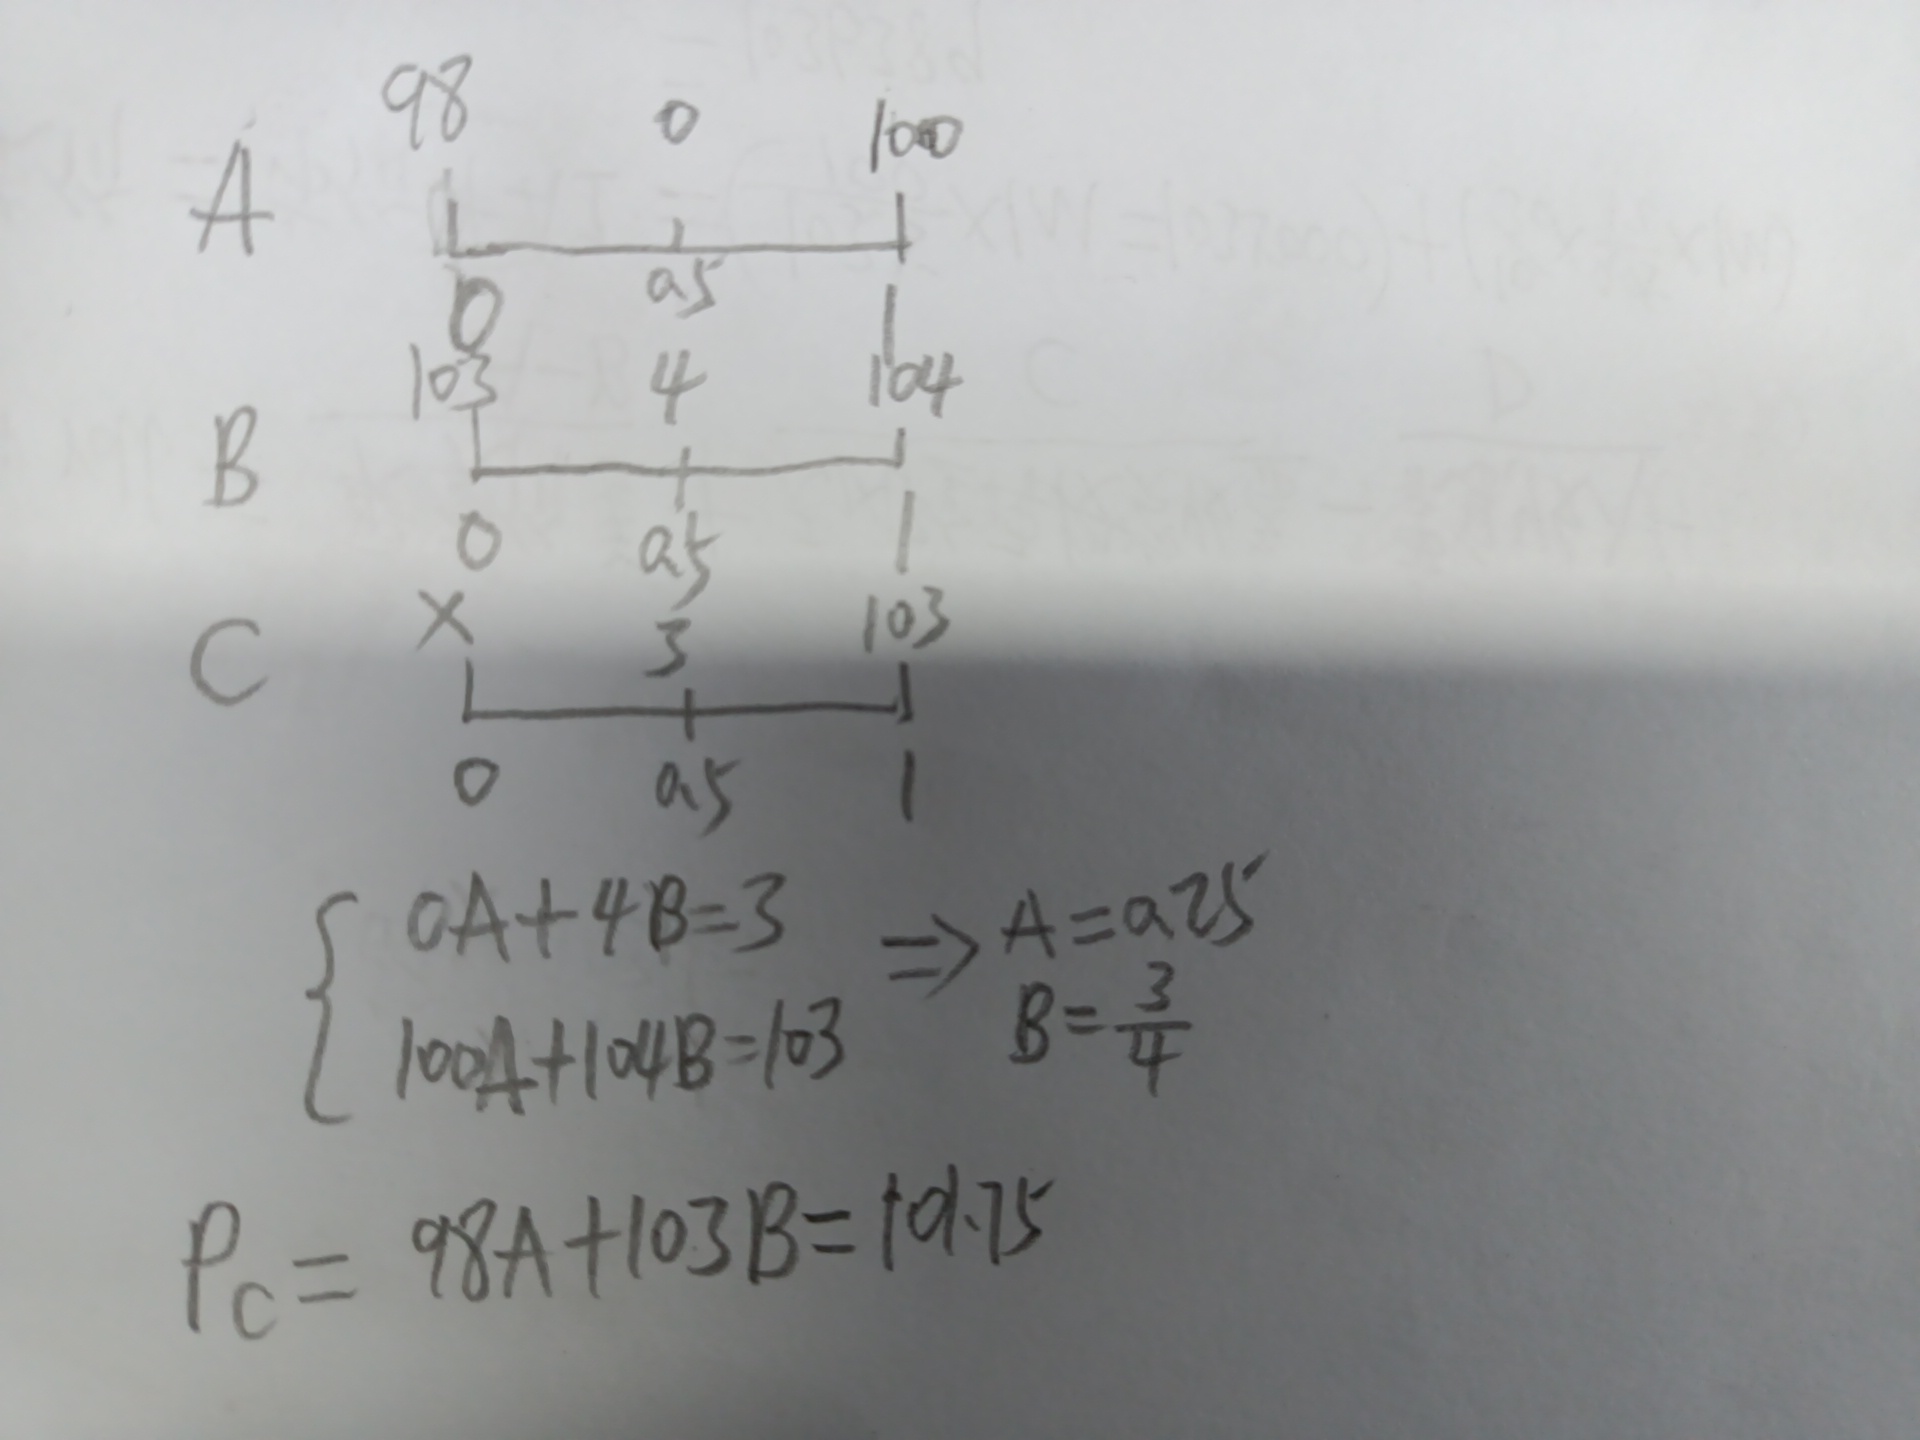 98 0 100
A
0 0.5 1
103 4 104
B
0 0.5 1
X 3 103
C
0 0.5 1
0A+4B=3 ⇒ A=0.25
100A+104B=103 B=3/4
Pc= 98A+103B=101.75